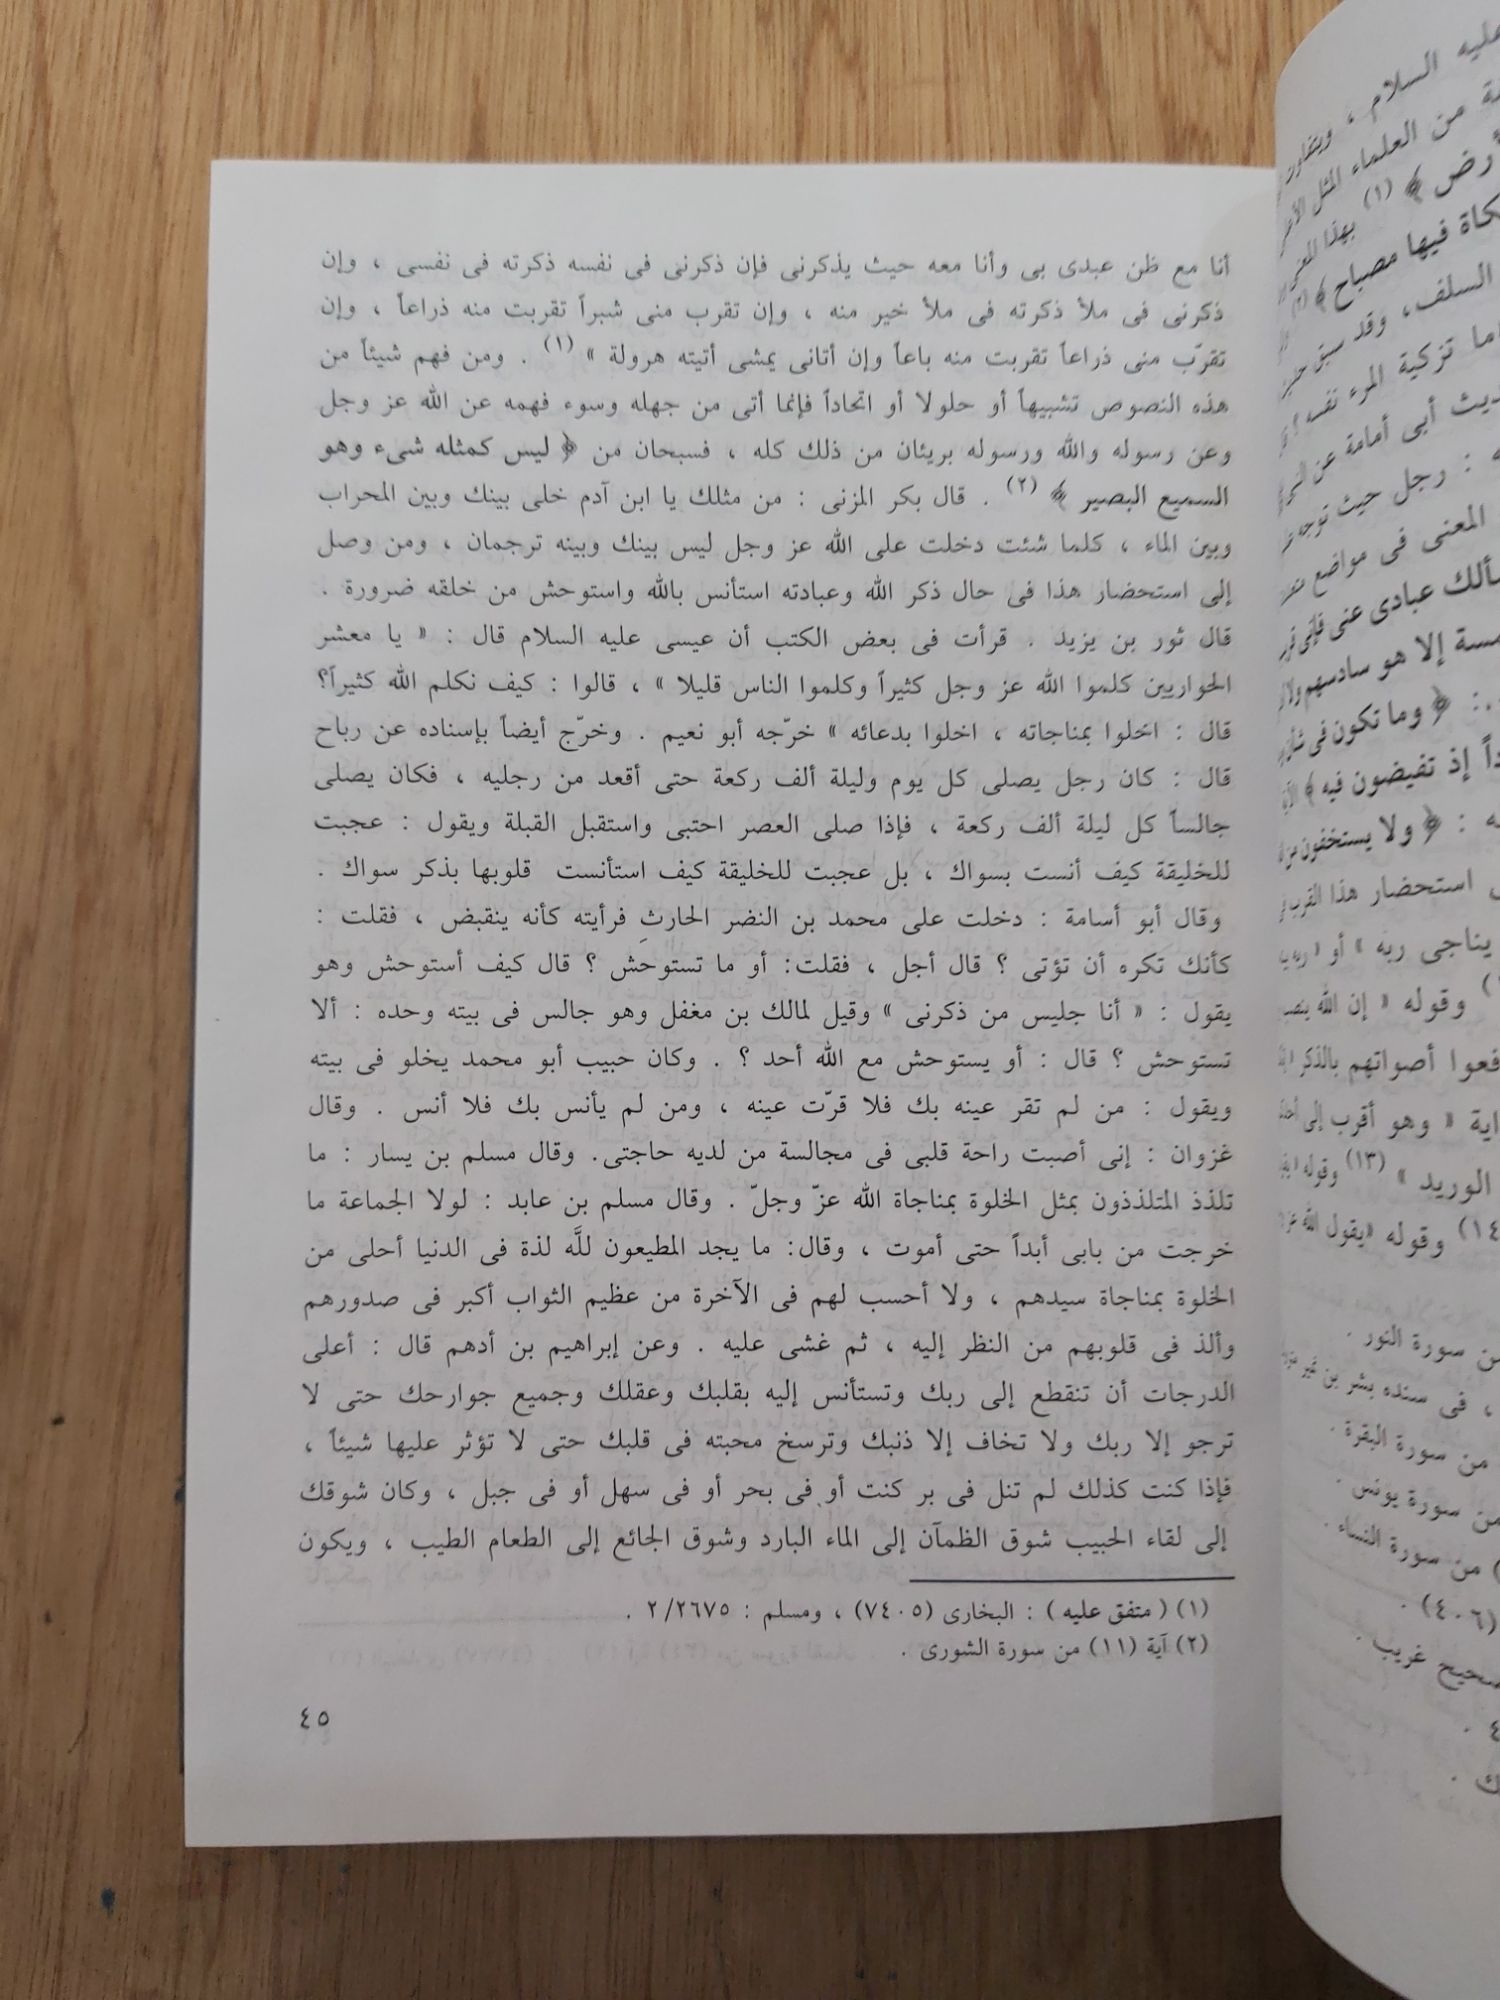 أنا مع ظن عبدى بى وأنا معه حيث يذكرنى فإن ذكرنى فى نفسه ذكرته فى نفسى ، وإن
ذكرنى فى ملأ ذكرته فى ملأ خير منه ، وإن تقرب منى شبراً تقربت منه ذراعاً ، وإن
تقرّب منى ذراعاً تقربت منه باعاً وإن أتانى يمشى أتيته هرولة » (١) . ومن فهم شيئاً من
هذه النصوص تشبيهاً أو حلولا أو اتحاداً فإنما أتى من جهله وسوء فهمه عن الله عز وجل
وعن رسوله والله ورسوله بريئان من ذلك كله ، فسبحان من ﴿ ليس كمثله شىء وهو
السميع البصير ﴾ (٢) . قال بكر المزنى : من مثلك يا ابن آدم خلى بينك وبين المحراب
وبين الماء ، كلما شئت دخلت على الله عز وجل ليس بينك وبينه ترجمان ، ومن وصل
إلى استحضار هذا فى حال ذكر الله وعبادته استأنس بالله واستوحش من خلقه ضرورة .
قال ثور بن يزيد . قرأت فى بعض الكتب أن عيسى عليه السلام قال : « يا معشر
الحواريين كلموا الله عز وجل كثيراً وكلموا الناس قليلا » ، قالوا : كيف نكلم الله كثيراً؟
قال : اخلوا بمناجاته ، اخلوا بدعائه » خرّجه أبو نعيم . وخرّج أيضاً بإسناده عن رباح
قال : كان رجل يصلى كل يوم وليلة ألف ركعة حتى أقعد من رجليه ، فكان يصلى
جالساً كل ليلة ألف ركعة ، فإذا صلى العصر احتبى واستقبل القبلة ويقول : عجبت
للخليقة كيف أنست بسواك ، بل عجبت للخليقة كيف استأنست قلوبها بذكر سواك .
وقال أبو أسامة : دخلت على محمد بن النضر الحارثِ فرأيته كأنه ينقبض ، فقلت :
كأنك تكره أن تؤتى ؟ قال أجل ، فقلت: أو ما تستوحش ؟ قال كيف أستوحش وهو
يقول : « أنا جليس من ذكرنى » وقيل لمالك بن مغفل وهو جالس فى بيته وحده : ألا
تستوحش ؟ قال : أو يستوحش مع الله أحد ؟ . وكان حبيب أبو محمد يخلو فى بيته
ويقول : من لم تقر عينه بك فلا قرّت عينه ، ومن لم يأنس بك فلا أنس . وقال
غزوان : إنى أصبت راحة قلبى فى مجالسة من لديه حاجتى. وقال مسلم بن يسار : ما
تلذذ المتلذذون بمثل الخلوة بمناجاة الله عزّ وجلّ . وقال مسلم بن عابد : لولا الجماعة ما
خرجت من بابى أبداً حتى أموت ، وقال: ما يجد المطيعون للَّه لذة فى الدنيا أحلى من
الخلوة بمناجاة سيدهم ، ولا أحسب لهم فى الآخرة من عظيم الثواب أكبر فى صدورهم
وألذ فى قلوبهم من النظر إليه ، ثم غشى عليه . وعن إبراهيم بن أدهم قال : أعلى
الدرجات أن تنقطع إلى ربك وتستأنس إليه بقلبك وعقلك وجميع جوارحك حتى لا
ترجو إلا ربك ولا تخاف إلا ذنبك وترسخ محبته فى قلبك حتى لا تؤثر عليها شيئاً ،
فإذا كنت كذلك لم تنل فى بر كنت أو فى بحر أو فى سهل أو فى جبل ، وكان شوقك
إلى لقاء الحبيب شوق الظمآن إلى الماء البارد وشوق الجائع إلى الطعام الطيب ، ويكون
(١) ( متفق عليه ) : البخارى (٧٤٠٥) ، ومسلم : ٢/٢٦٧٥ .
(٢) آية (١١) من سورة الشورى .
٤٥
عليه السلام ،
من العلماء المثل
أرض ﴾ (١) بهذا
كاة فيها مصباح ﴾ (٢)
السلف، وقد سبق
ما تزكية المرء نفسه
أبى أمامة عن
: رجل حيث توجه
المعنى فى مواضع
عبادى عنى فإنى
إلا هو سادسهم ولا
: ﴿ وما تكون فى
إذ تفيضون فيه ﴾
: ﴿ ولا يستخفون
استحضار هذا القرب
يناجى ربه » أو «
وقوله « إن الله
أصواتهم بالذكر
« وهو أقرب إلى
الوريد » (١٣) وقوله
وقوله «يقول الله
من سورة النور .
، فى سنده بشر بن نمير
من سورة البقرة .
من سورة يونس .
من سورة النساء .
(٤٠٦) .
غريب .